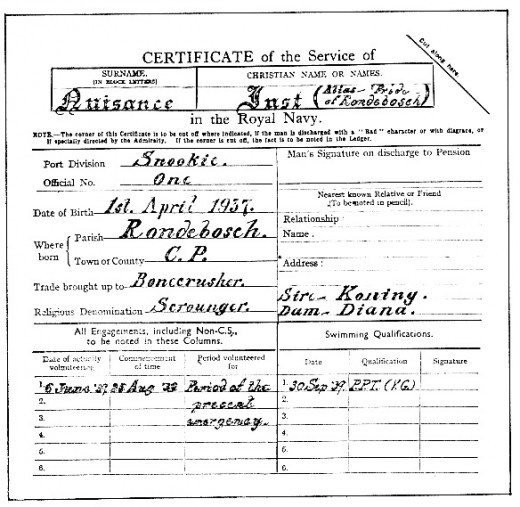 CERTIFICATE of the Service of
Cut along here.
SURNAME. CHRISTIAN NAME OR NAMES.
(IN BLOCK LETTERS)
Nuisance Just (Alias - "Pride of Rondebosch)
in the Royal Navy.
NOTE.—The corner of this Certificate is to be cut off where indicated, if the man is discharged with a "Bad" character or with disgrace, or
if specially directed by the Admiralty. If the corner is cut off, the fact is to be noted in the Ledger.
Port Division Snookie.
Official No. One
Man's Signature on discharge to Pension
Date of Birth 1st. April 1937.
Where born { Parish Rondebosch.
Town or County C.P.
Trade brought up to Bonecrusher.
Religious Denomination Scrounger.
Nearest known Relative or Friend
(To be noted in pencil).
Relationship
Name
Address:
Sire - Koning.
Dam - Diana.
All Engagements, including Non-C.S.,
to be noted in these Columns.
Swimming Qualifications.
Date of actually volunteering Commencement of time Period volunteered for
Date Qualification Signature
1. Aug Period of the
2. present
3. emergency.
4.
5.
6.
1. 30 Sep '39. P.P.T. (V.G.)
2.
3.
4.
5.
6.